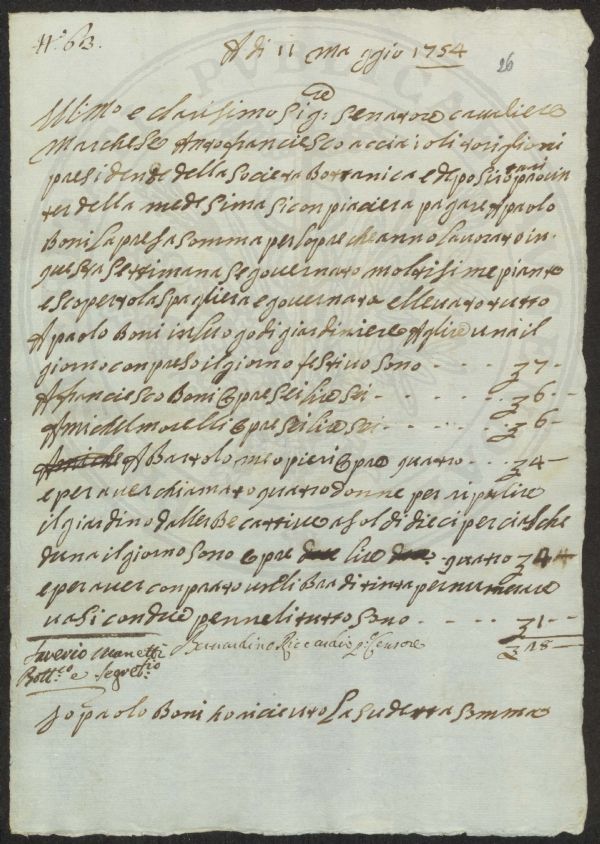 N.° 63.
A di 11 Maggio 1754
26
Ill.mo e clarisimo Sig.re Senatore cavaliere
Marchese Antofranciesco acciaioli toriglioni
presidente della Societa Bottanica e depositario provin
ter della medesima si conpiaciera pagare A paolo
Boni La presa somma per lopre che anno lavorato in
questa settimana se governato moltisime piante
e scoperto la spagliera e governata e levato tutto
A paolo Boni in luogo di giardiniere A lire una il
giorno conpreso il giorno festivo sono - - - - 37 -
A franciesco Boni opre sei lire sei - - - - - 36 -
A michel morelli opre sei lire sei - - - - - 36 -
A Bartolomeo pieri opre quatro - - - 34 -
e per aver chiamato quatro donne per ripulire
il giardino dallerbe cattive a soldi dieci per ciasche
duna il giorno sono opre lire quatro 34
e per aver conprato un Libra di tinta per numerare
vasi con due penneli tutto sono - - - - 31 - -
328 - -
Saverio Manetti
Bott.co e Segret.rio
Bernardino Riccardi p.o Censore
Io paolo Boni ho riceuto La sudetta somma